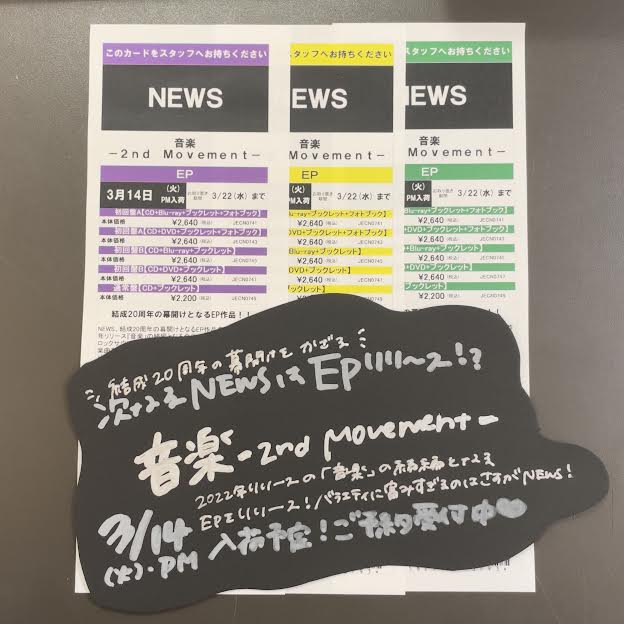 このカードをスタッフへお持ちください
NEWS
音楽
-2nd Movement-
EP
3月14日 (火) PM入荷 お取り置き期間 3/22(水)まで
初回盤A【CD+Blu-ray+ブックレット+フォトブック】
本体価格 ¥2,640(税込) JECN0741
初回盤A【CD+DVD+ブックレット+フォトブック】
本体価格 ¥2,640(税込) JECN0743
初回盤B【CD+Blu-ray+ブックレット】
本体価格 ¥2,640(税込)
初回盤B【CD+DVD+ブックレット】
本体価格 ¥2,640(税込) JECN0747
通常盤【CD+ブックレット】
本体価格 ¥2,200(税込) JECN0745
結成20周年の幕開けとなるEP作品!!
NEWS、結成20周年の幕開けとなるEP作品
年リリース『音楽』の
ロックサ
スタッフへお持ちください
EWS
音楽
2nd Movement-
EP
PM入荷 お取り置き期間 3/22(水)まで
Blu-ray+ブックレット+フォトブック】
¥2,640(税込) JECN0741
DVD+ブックレット+フォトブック】
¥2,640(税込) JECN0743
Blu-ray+ブックレット】
¥2,640(税込)
DVD+ブックレット】
¥2,640(税込) JECN0747
ブックレット】
¥2,200(税込) JECN0745
スタッフへお持ちください
EWS
音楽
Movement-
EP
(火) PM入荷 お取り置き期間 3/22(水)まで
Blu-ray+ブックレット+フォトブック】
¥2,640(税込) JECN0741
+DVD+ブックレット+フォトブック】
¥2,640(税込) JECN0743
Blu-ray+ブックレット】
¥2,640(税込)
DVD+ブックレット】
¥2,640(税込) JECN0747
ブックレット】
¥2,200(税込) JECN0745
結成20周年の幕開けをかざる
次なるNEWSはEPリリース!?
音楽-2nd Movement-
2022年リリースの「音楽」の続編となる
EPをリリース!バラエティに富みすぎるのはさすがNEWS!
3/14(火)・PM 入荷予定!ご予約受付中♥